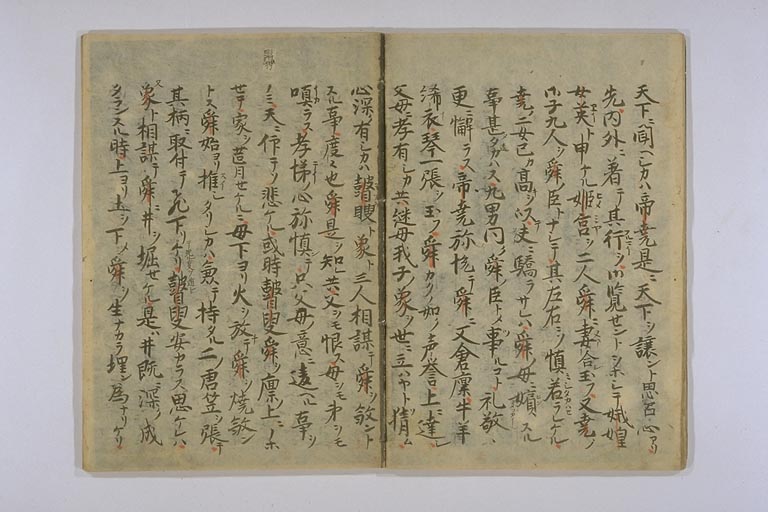 天下ニ聞ヘシカハ帝堯是ニ天下ヲ譲ント思召心アリ
先内外ニ著テ其行ヲ御覧セントヲホシテ娥皇
女英ト申ケル姫宮ヲ二人舜ニ妻合玉フ又堯ノ
御子九人ヲ舜ノ臣トナシテ其左右ニソ慎若ラレケル
堯ノ二女已カ高ヲ以テ夫ニ驕ラサレハ舜母ニ嬪スル
事甚タカハス九男同ク舜ノ臣トメ事ルコト礼敬
更ニ懈ラス帝堯弥悦テ舜ニ又倉廩牛羊
絺衣琴一張ヲ玉フ舜カクノ如ノ声誉上ニ達シ
父母ニ孝有シカ共継母我子ノ象ヲ世ニ立ハヤト猜ム
心深ノ有シカハ瞽瞍ト象ト三人相謀テ舜ヲ敘ント
スル事度々也舜是ヲ知レ共父ヲモ恨ス母ヲモ弟ヲモ
嗔ラス孝悌ノ心弥慎テ只父母ノ意ニ違ヘル事ヲ
ノミ天ニ仰テソ悲ケル或時瞽叟舜ヲ廩上ニノホ
セテ家ヲ葺セケルニ母下ヨリ火ヲ放テ舜ヲ燒敘ン
トス舜始ヨリ推シタリシカハ兼テ持タル二唐笠ヲ張テ
其柄ニ取付テ飛下リケリ瞽叟安カラス思ケレハ
象ト相謀テ舜ニ井ヲ堀セケル是ハ井既ニ深ク成
タランスル時上ヨリ土ヲ下メ舜ヲ生ナカラ埋ン為ナリケリ